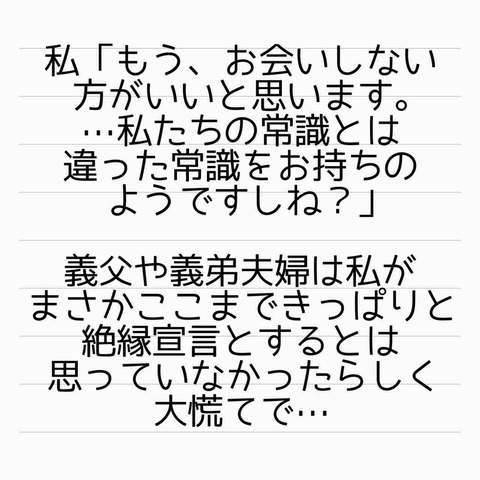 私「もう、お会いしない
方がいいと思います。
…私たちの常識とは
違った常識をお持ちの
ようですしね？」
義父や義弟夫婦は私が
まさかここまできっぱりと
絶縁宣言とするとは
思っていなかったらしく
大慌てで…